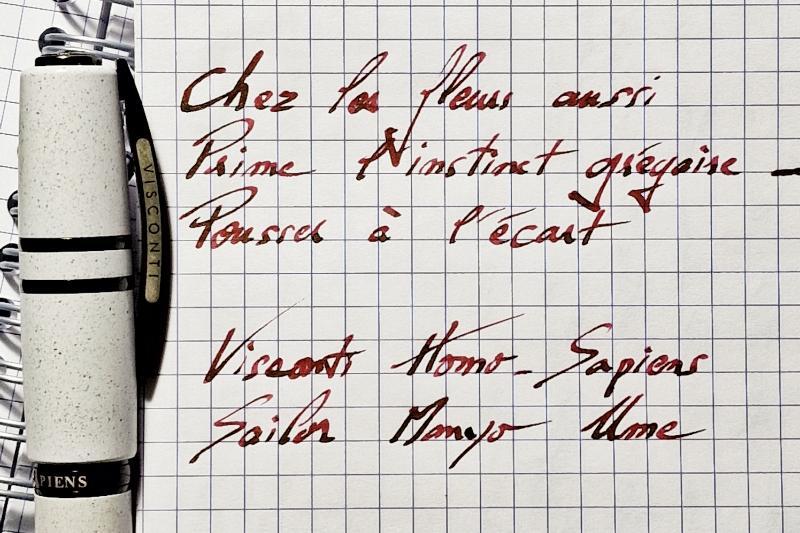 Chez les fleurs aussi
Prime l'instinct grégaire —
Pousser à l'écart
Visconti Homo-Sapiens
Sailor Manyo Ume
VISCONTI
APIENS